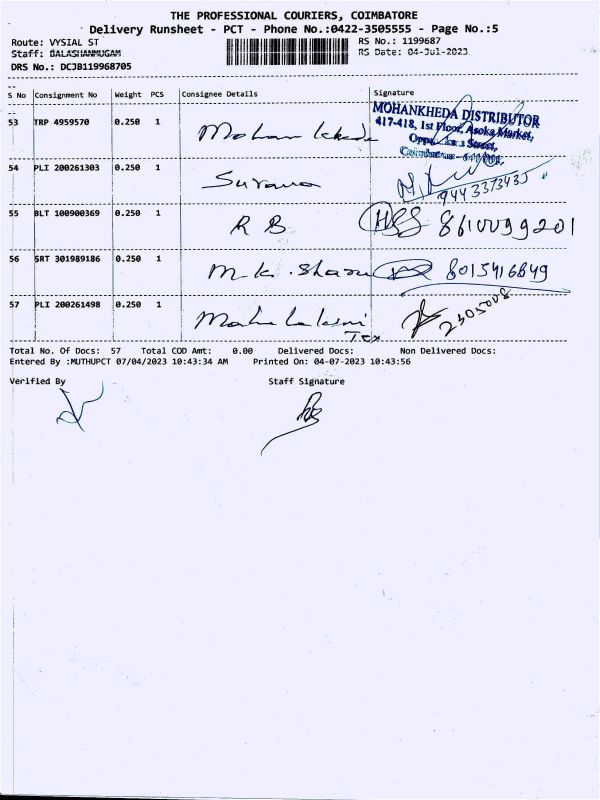 THE PROFESSIONAL COURIERS, COIMBATORE
Delivery Runsheet - PCT - Phone No.:0422-3505555 - Page No.:5
Route: VYSIAL ST
RS No.: 1199687
Staff: BALASHANMUGAM
RS Date: 04-Jul-2023
DRS No.: DCJB119968705
S No Consignment No Weight PCS Consignee Details Signature
53 TRP 4959570 0.250 1 Mohan
MOHANKHEDA DISTRIBUTOR
417-418, 1st Floor, Asoka Market,
Street,
54 PLI 200261303 0.250 1 Surana
9443373435
55 BLT 100900369 0.250 1 R B HSS 8610099201
56 SRT 301989186 0.250 1 M.K. 8015416849
57 PLI 200261498 0.250 1 Tex 2305008
Total No. Of Docs: 57 Total COD Amt: 0.00 Delivered Docs: Non Delivered Docs:
Entered By :MUTHUPCT 07/04/2023 10:43:34 AM Printed On: 04-07-2023 10:43:56
Verified By Staff Signature